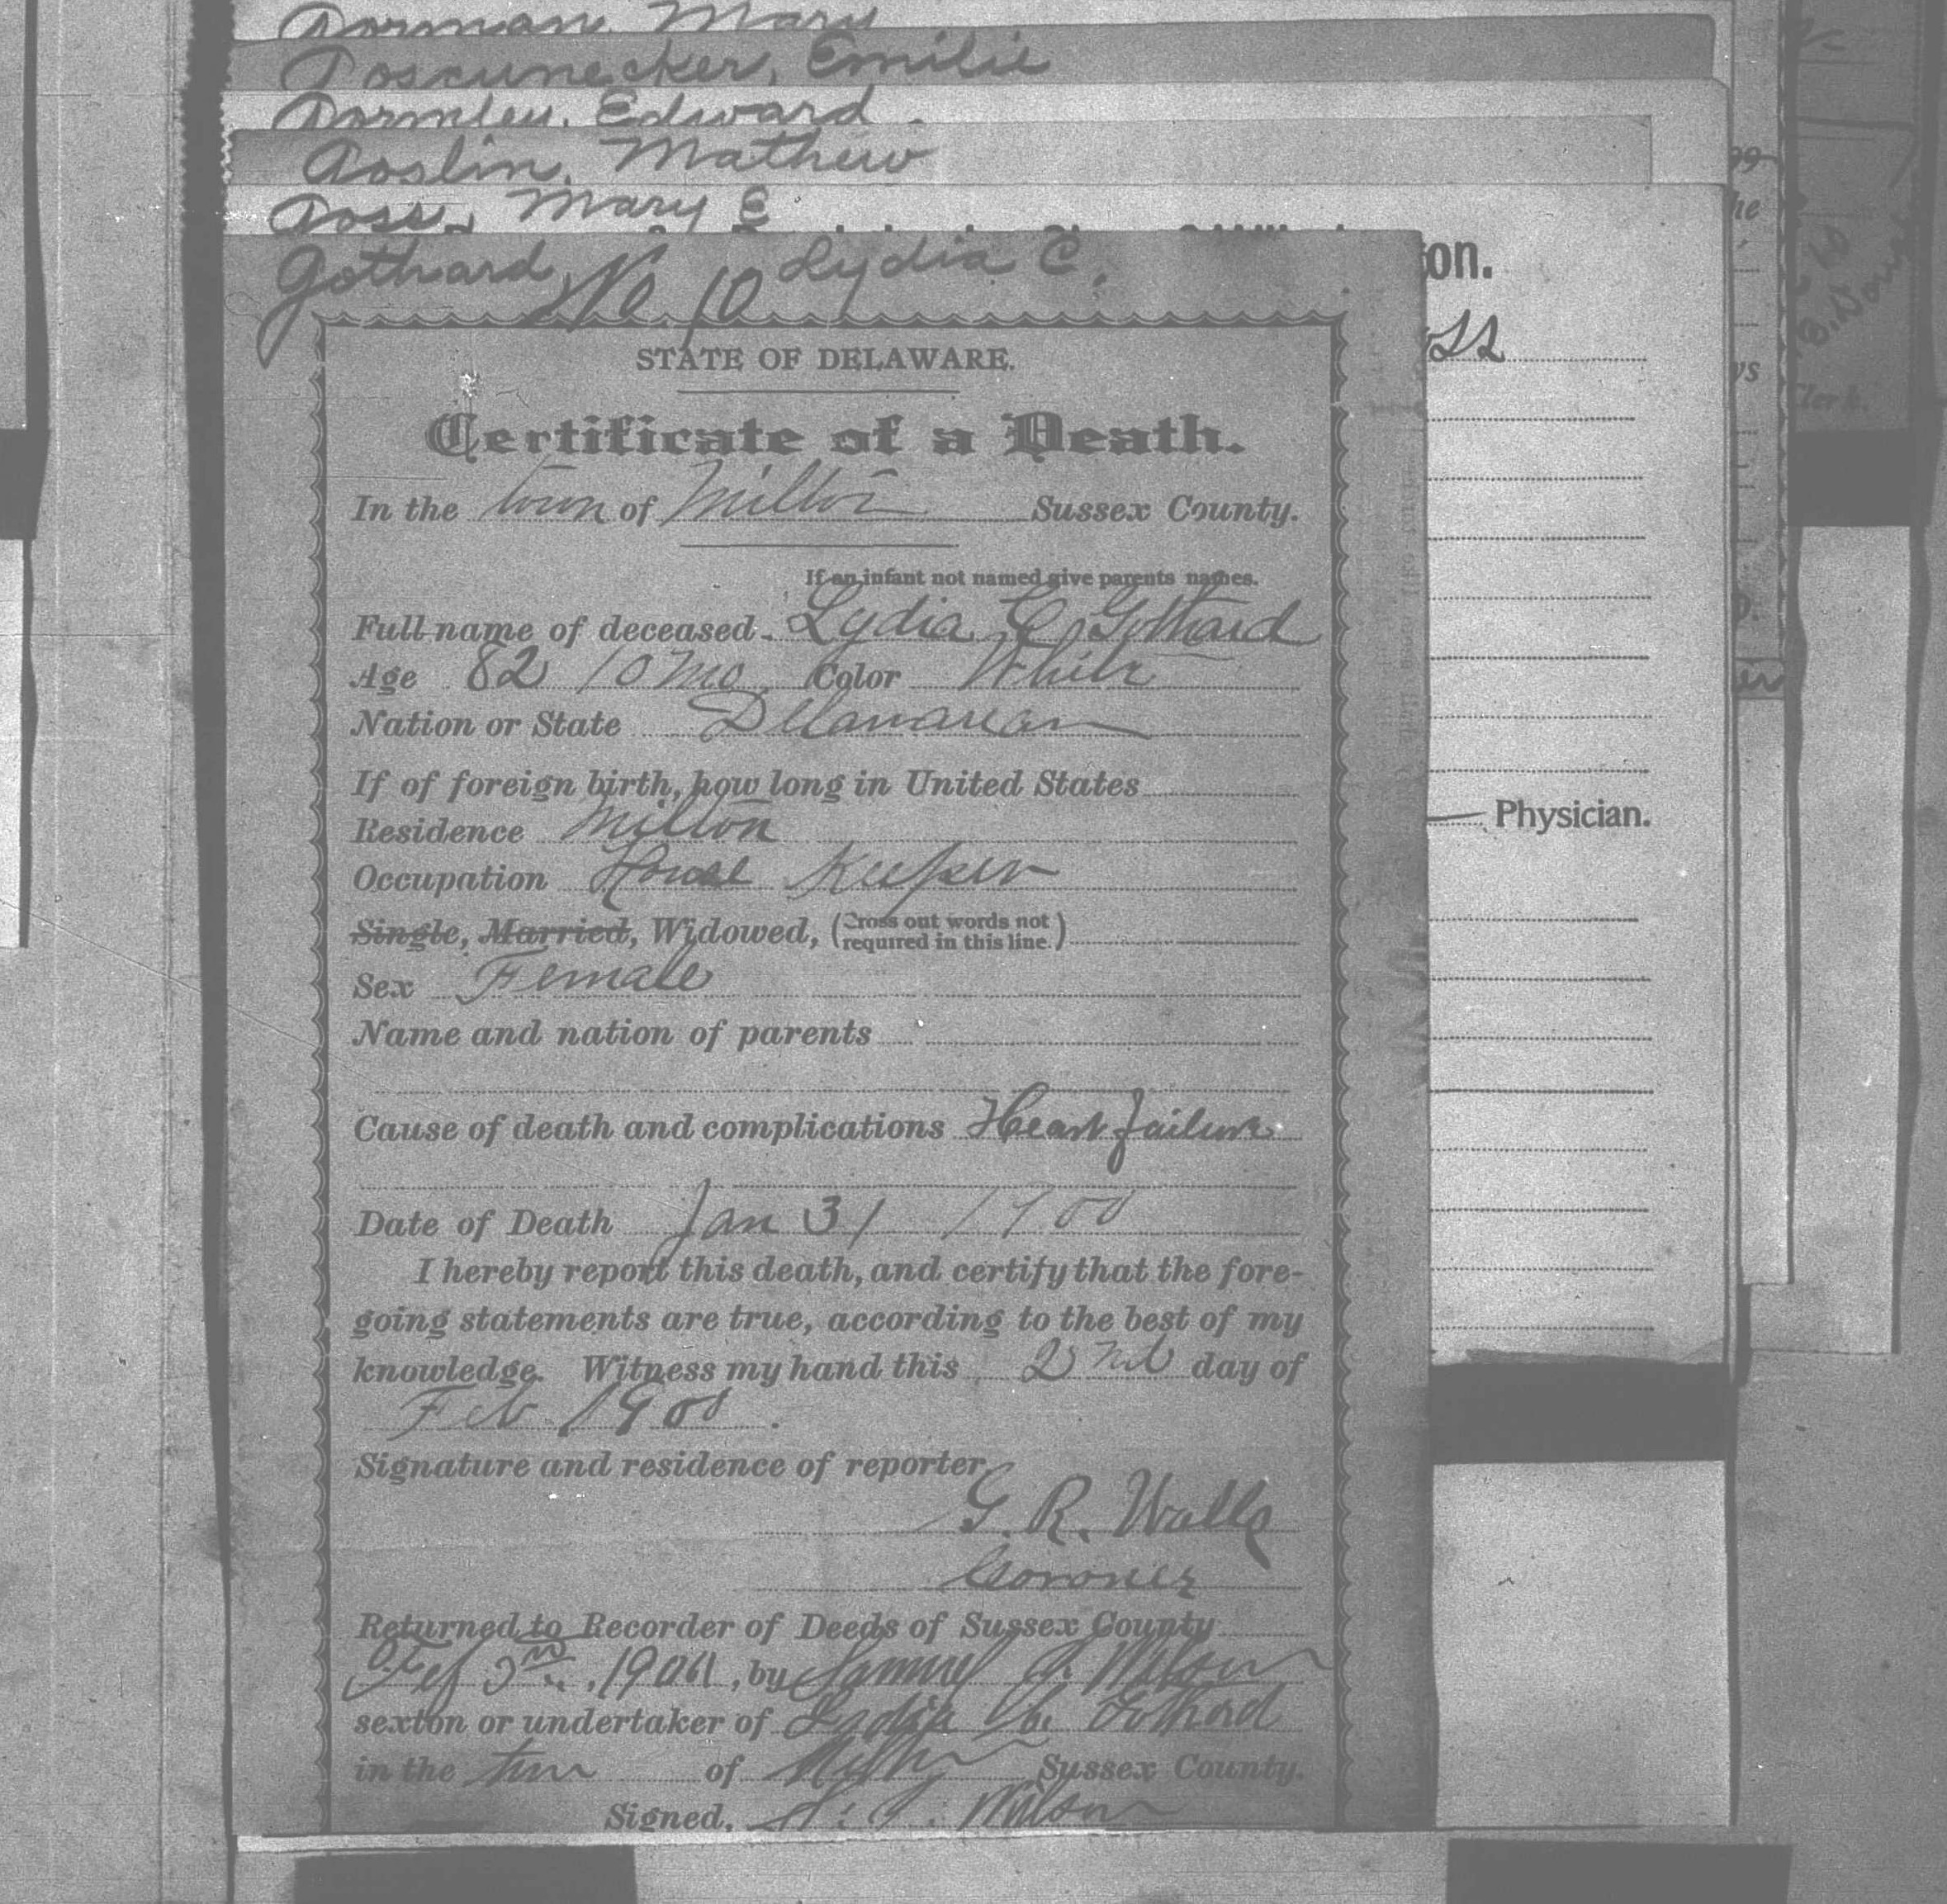 Gorman, Mary
Goscunecker, Emilie
Gormley, Edward.
Goslin, Mathew
Goss, Mary E
Gothard, Lydia C.
No. 10
on.
STATE OF DELAWARE.
Certificate of a Death.
In the town of Milton Sussex County.
If an infant not named give parents names.
Full name of deceased Lydia C Gothard
Age 82 10 mo Color White
Nation or State Delawarean
If of foreign birth, how long in United States
Residence Milton
Physician.
Occupation House Keeper
Single, Married, Widowed, (Cross out words not required in this line.)
Sex Female
Name and nation of parents
Cause of death and complications Heart failure
Date of Death Jan 31 1900
I hereby report this death, and certify that the fore-
going statements are true, according to the best of my
knowledge. Witness my hand this 2nd day of
Feb 1900.
Signature and residence of reporter
G. R. Walls
Coroner
Returned to Recorder of Deeds of Sussex County
by Samuel J. Wilson
sexton or undertaker of Lydia C. Gothard
in the town of Milton Sussex County.
Signed, S. J. Wilson